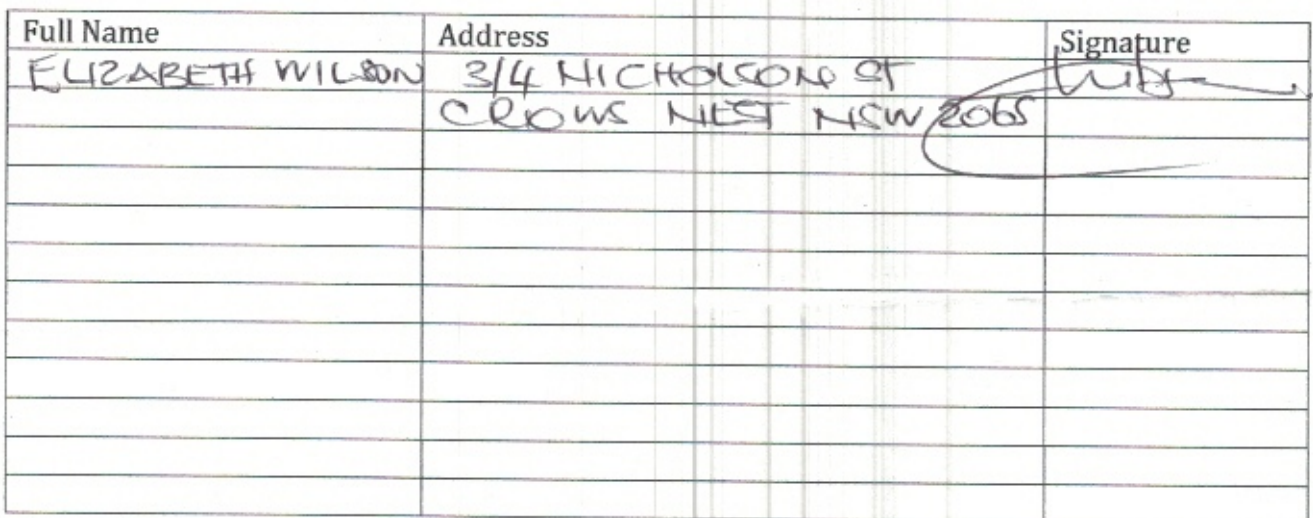 Full Name Address Signature
ELIZABETH WILSON 3/4 NICHOLSON ST
CROWS NEST NSW 2065